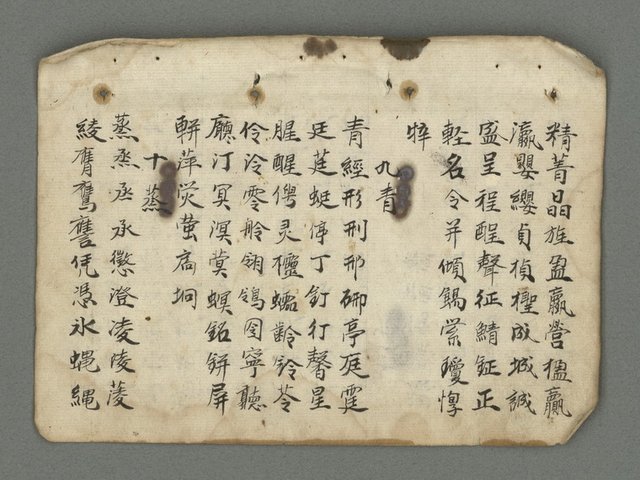 精菁晶旌盈嬴營楹贏
瀛嬰纓貞楨檉成城誠
盛呈程酲聲征鯖鉦正
輕名令并傾餳縈瓊惸
䮾
九青
青經形刑邢硎亭庭霆
廷莛蜓停丁釘仃馨星
腥醒俜灵櫺蠕齡铃苓
伶泠零舲翎鴒囹寧聽
廳汀冥溟蓂螟銘缾屏
軿萍荧萤扃坰
十蒸
蒸烝丞承懲澄凌陵菱
綾膺鷹譍凭憑氷蝿縄